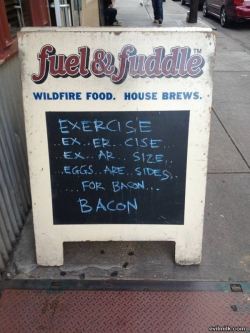 fuel & fuddle™
WILDFIRE FOOD. HOUSE BREWS.
EXERCISE
..EX..ER..CISE..
EX...AR..SIZE..
..EGGS..ARE..SIDES..
...FOR BACON...
BACON
evilmilk.com